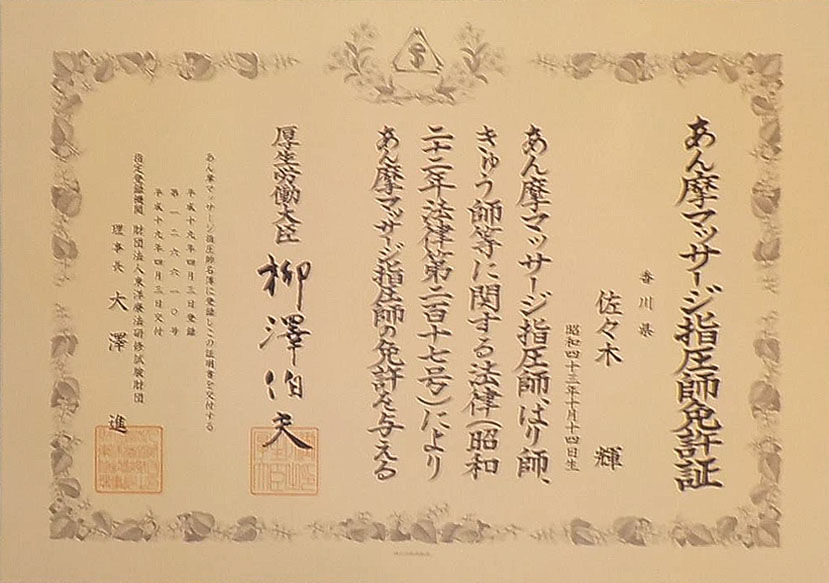 あん摩マッサージ指圧師免許証
香川県
佐々木 輝
昭和四十三年十月十四日生
あん摩マッサージ指圧師、はり師、
きゅう師等に関する法律（昭和
二十二年法律第二百十七号）により
あん摩マッサージ指圧師の免許を与える
厚生労働大臣 柳澤伯夫
あん摩マッサージ指圧師名簿に登録しこの証明書を交付する
平成十九年四月三日登録
第一二六六一〇号
平成十九年四月三日交付
指定登録機関 財団法人東洋療法研修試験財団
理事長 大澤 進